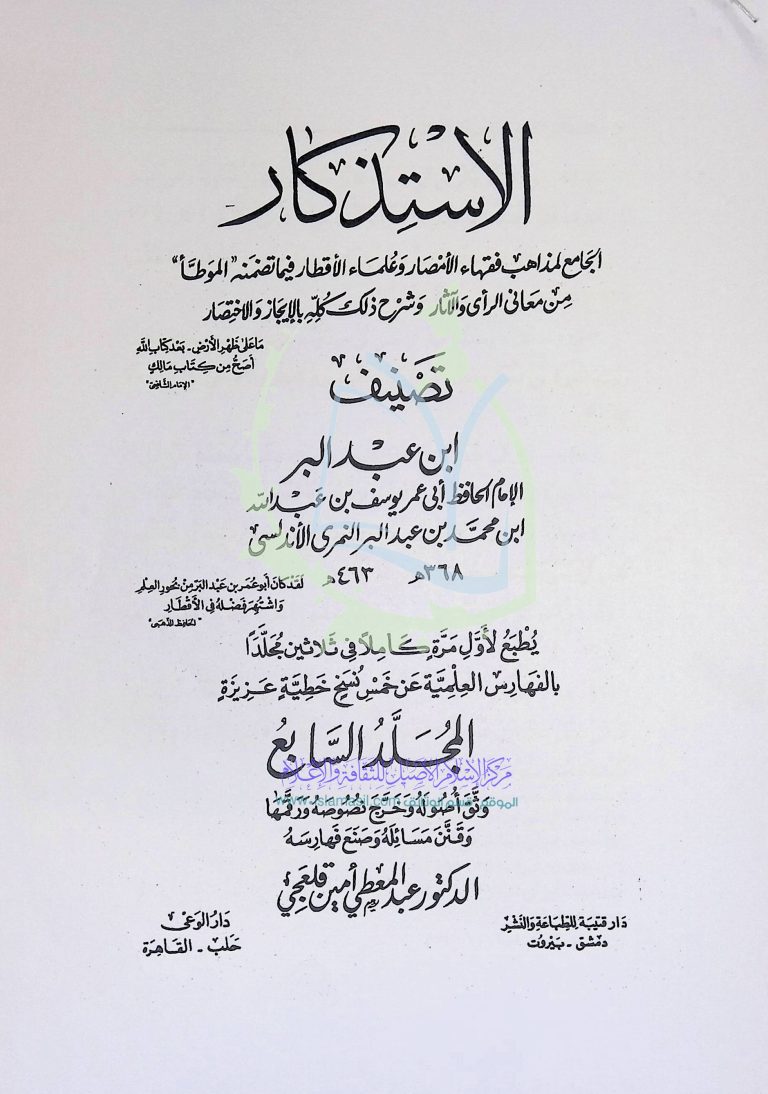 الاستذكار
الجامع لمذاهب فقهاء الأمصار وعلماء الأقطار فيما تضمنه "الموطأ"
من معاني الرأى والآثار وشرح ذلك كله بالإيجاز والاختصار
ما على ظهر الأرض - بعد كتاب الله
أصح من كتاب مالك
"الإمام الشافعى"
تصنيف
ابن عبد البر
الإمام الحافظ أبى عمر يوسف بن عبد الله
ابن محمد بن عبد البر النمرى الأندلسى
٣٦٨هـ ٤٦٣هـ
لقد كان أبو عمر بن عبد البر من بحور العلم
واشتهر فضله فى الأقطار
"الحافظ الذهبى"
يُطْبَعُ لأَوَّلِ مَرَّةٍ كَامِلاً فِى ثَلاثين مُجَلَّدًا
بالفهارس العِلمِيَّة عَن خَمْسِ نُسَخٍ خَطِيَّةٍ عَزِيزَةٍ
المُجَلَّدُ السَّابعُ
مركز الإسلام الأصيل للثقافة والإعلام
وَثَّقَ أُصُولَهُ وَخَرَّجَ نُصُوصَهُ وَرَقَّمَهَا
وَقَنَّنَ مَسَائِلَهُ وَصَنَعَ فَهَارِسَهُ
الدكتور عبد المعطي أمين قلعجي
دار قتيبة للطباعة والنشر
دمشق - بيروت
دار الوعى
حلب - القاهرة